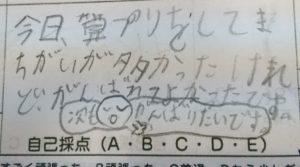 今日、算プリをしてま
ちがいが多かったけれ
ど、がんばれてよかったです。
次も がんばりたいです。
自己採点（A・B・C・D・E）